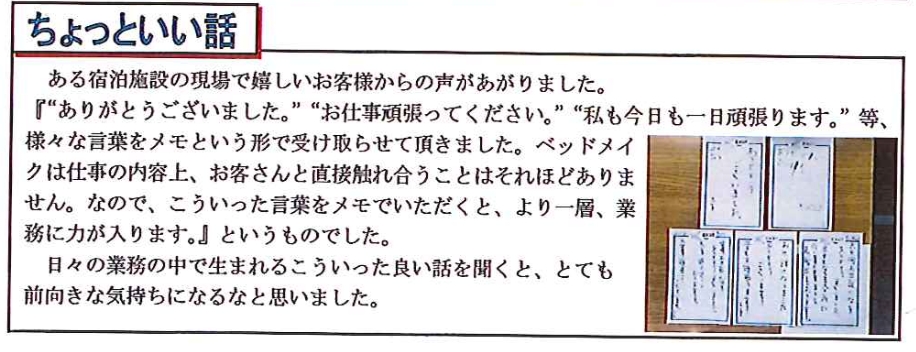 ちょっといい話
ある宿泊施設の現場で嬉しいお客様からの声があがりました。
『“ありがとうございました。”“お仕事頑張ってください。”“私も今日も一日頑張ります。”等、
様々な言葉をメモという形で受け取らせて頂きました。ベッドメイ
クは仕事の内容上、お客さんと直接触れ合うことはそれほどありま
せん。なので、こういった言葉をメモでいただくと、より一層、業
務に力が入ります。』というものでした。
日々の業務の中で生まれるこういった良い話を聞くと、とても
前向きな気持ちになるなと思いました。